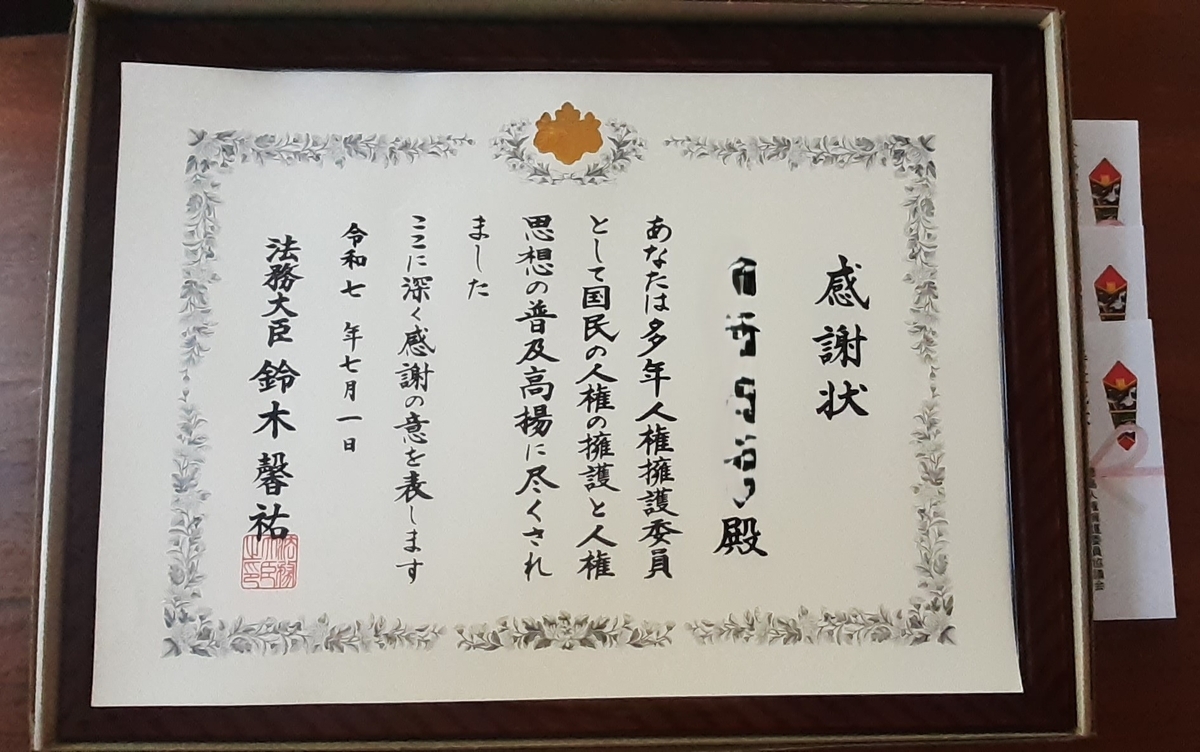 感謝状
殿
あなたは多年人権擁護委員
として国民の人権の擁護と人権
思想の普及高揚に尽くされ
ました
ここに深く感謝の意を表します
令和七年七月一日
法務大臣 鈴木馨祐
法務大臣之印
人権擁護委員協議会